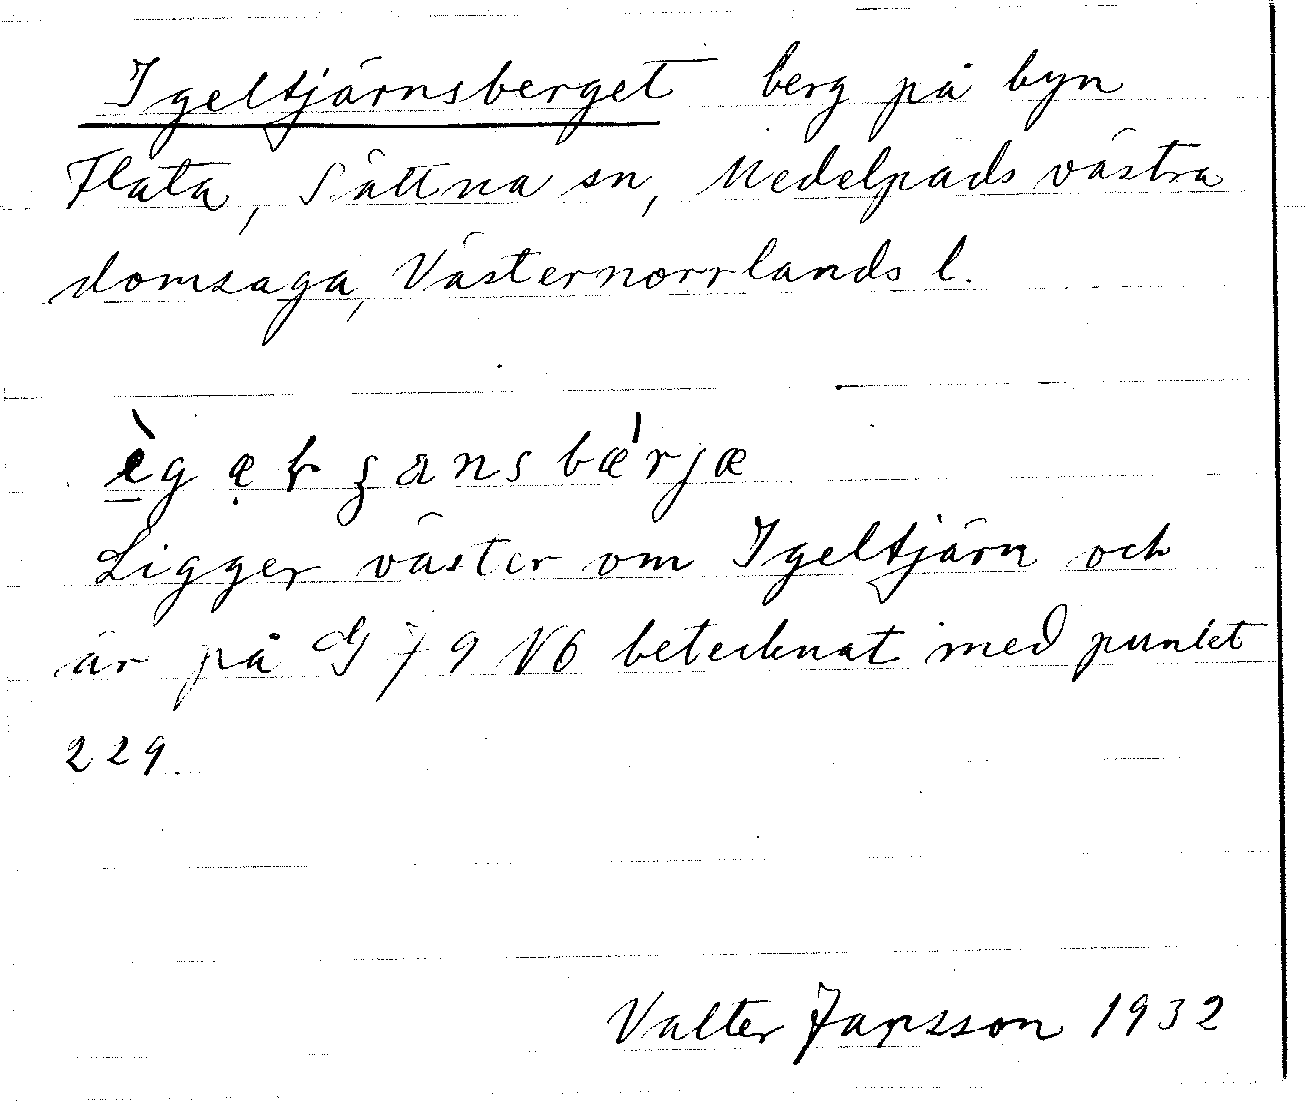 Igeltjärnsberget berg på byn
Flata, Sättna sn, Medelpads västra
domsaga, Västernorrlands l.
Ligger väster om Igeltjärn och
är på GJ 9 NÖ betecknat med punkt
229.
Valter Jansson 1932